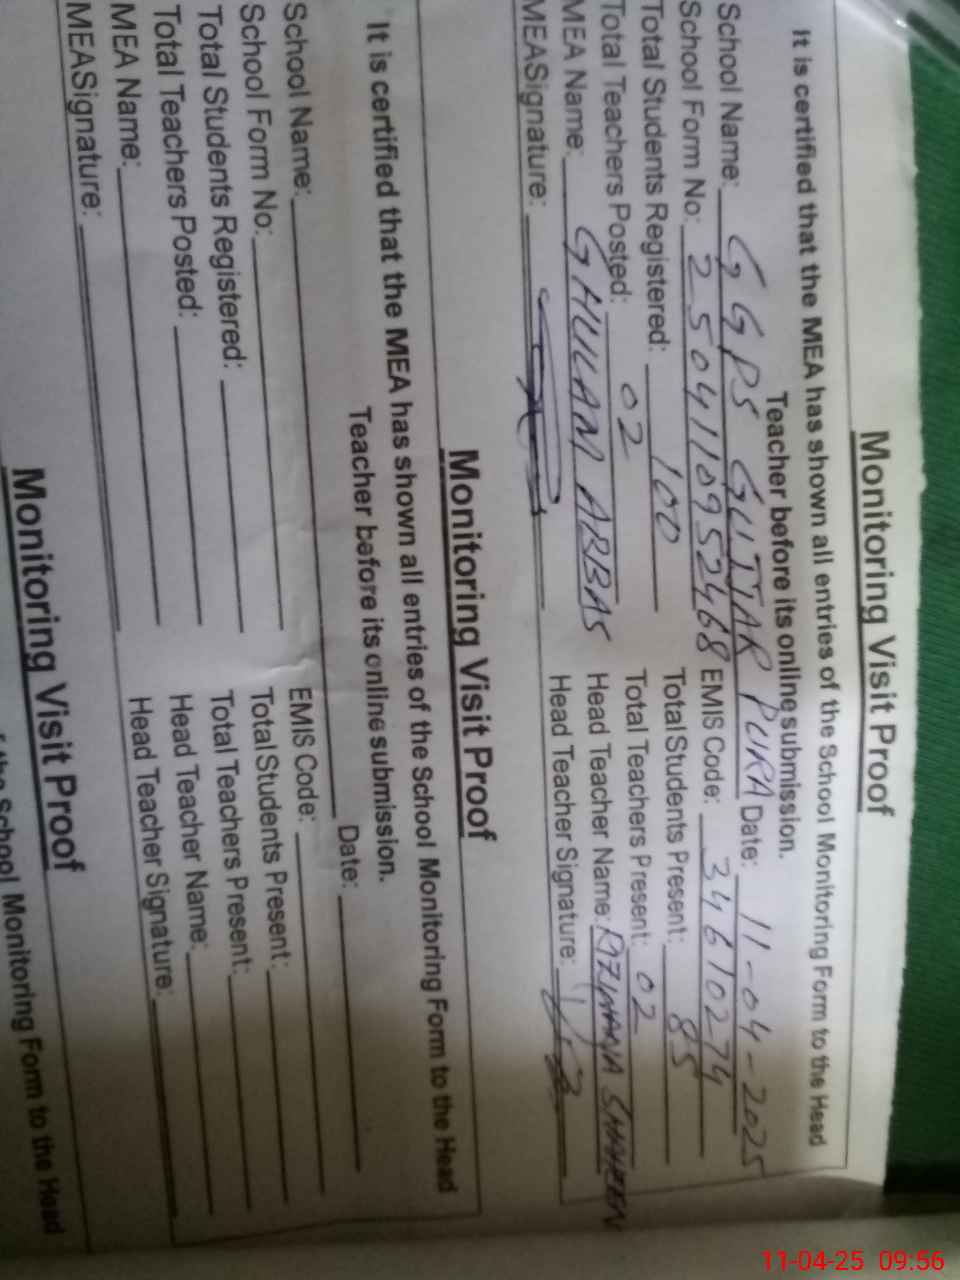 Monitoring Visit Proof
It is certified that the MEA has shown all entries of the School Monitoring Form to the Head
Teacher before its online submission.
School Name: GGPS GUJJAR PURA Date: 11-04-2025
School Form No: 2504110952468 EMIS Code: 34610274
Total Students Registered: 100 Total Students Present: 85
Total Teachers Posted: 02 Total Teachers Present: 02
MEA Name: GHULAM ABBAS Head Teacher Name: RIZWANA SHAHEEN
MEASignature: Head Teacher Signature:
Monitoring Visit Proof
It is certified that the MEA has shown all entries of the School Monitoring Form to the Head
Teacher before its online submission.
School Name: Date:
School Form No: EMIS Code:
Total Students Registered: Total Students Present:
Total Teachers Posted: Total Teachers Present:
MEA Name: Head Teacher Name:
MEASignature: Head Teacher Signature:
Monitoring Visit Proof
School Monitoring Form to the Head
11-04-25 09:56